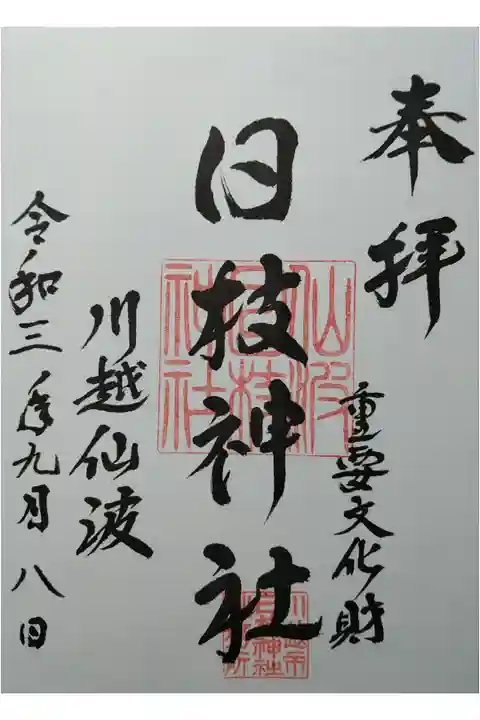 奉拝
重要文化財
日枝神社
仙波日枝神社
川越仙波
令和三年九月八日